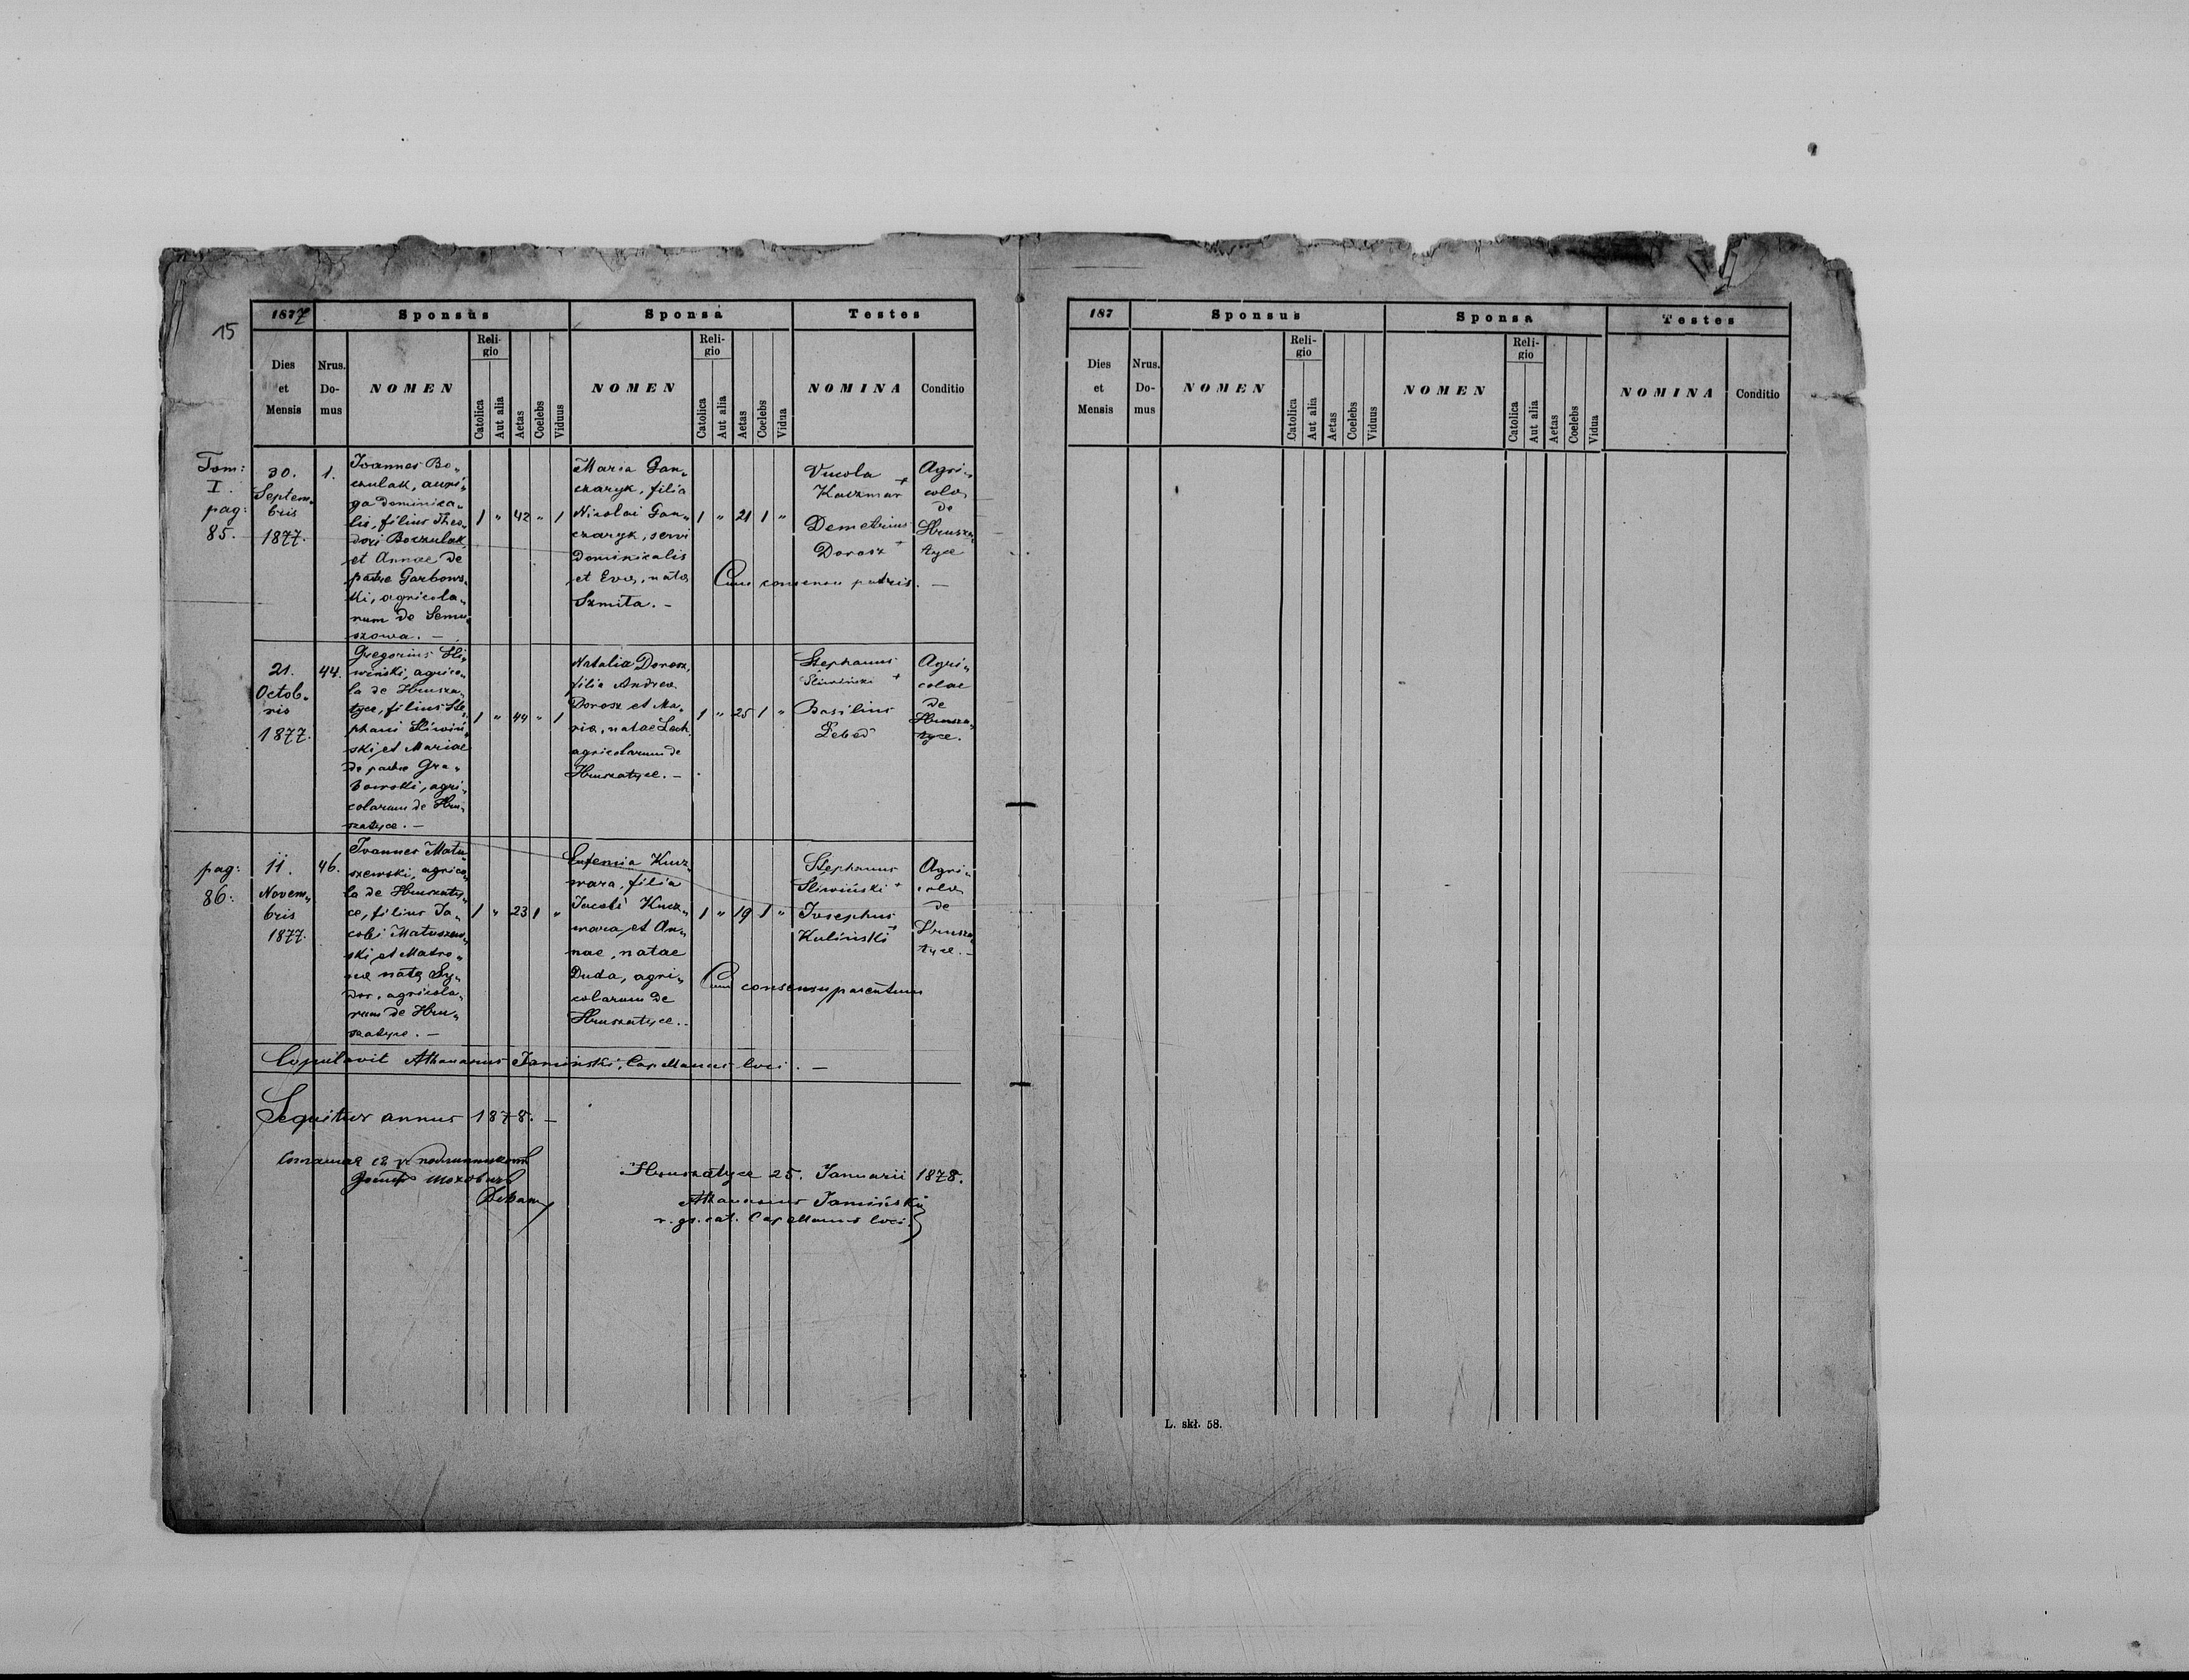 15
1877
Sponsus
Sponsa
Testes
Dies et Mensis
Nrus. Do- mus
NOMEN
Reli- gio
Catolica
Aut alia
Aetas
Coelebs
Viduus
NOMEN
Reli- gio
Catolica
Aut alia
Aetas
Coelebs
Vidua
NOMINA
Conditio
Tom:
I.
pag:
85.
30.
Septem„
bris
1877.
1.
Joannes Bo„
czulak, auri„
ga dominica„
lis, filius Theo„
dori Boczulak,
et Annae de
patre Garbows„
ki, agricola„
rum de Semu„
szowa. —
1 „ 42 „ 1
Maria Gan„
czaryk, filia
Nicolai Gan„
czaryk, servi
dominicalis
et Evae, natae
Szmita. —
1 „ 21 1 „
Vucola
Kaczmar +
Demetrius
Dorosz +
Agri„
colae
de
Hrusza„
tyce
Cum consensu patris. —
21.
Octob„
ris
1877.
44.
Gregorius Sli„
wiński, agrico„
la de Hrusza„
tyce, filius Ste„
phani Sliwiń„
ski et Mariae
de patre Gra„
bowski, agri„
colarum de Hru„
szatyce. —
1 „ 44 „ 1
Natalia Dorosz,
filia Andreae
Dorosz et Ma„
riae, natae Lech
agricolarum de
Hruszatyce. —
1 „ 25 1 „
Stephanus
Sliwiński +
Basilius
Lebed
Agri„
colae
de
Hrusza„
tyce.
pag:
86.
11.
Novem„
bris
1877.
46.
Joannes Matu„
szewski, agrico„
la de Hruszaty„
ce, filius Ja„
cobi Matuszews„
ki et Matro„
nae natae Sy„
dor, agricola„
rum de Hru„
szatyce. —
1 „ 23 1 „
Eufemia Kucz„
mara, filia
Jacobi Kucz„
mara et An„
nae, natae
Duda, agri„
colarum de
Hruszatyce.
1 „ 19 1 „
Stephanus
Sliwiński +
Josephus
Kuliński +
Agri„
colae
de
Hrusza„
tyce. —
Cum consensu parentum
Copulavit Athanasius Jamiński, Capellanus loci. —
Sequitur annus 1878. —
Hruszatyce 25. Januarii 1878.
Athanasius Jamiński
r. gr. cat. Capellanus loci.
187
Sponsus
Sponsa
Testes
Dies et Mensis
Nrus. Do- mus
NOMEN
Reli- gio
Catolica
Aut alia
Aetas
Coelebs
Viduus
NOMEN
Reli- gio
Catolica
Aut alia
Aetas
Coelebs
Vidua
NOMINA
Conditio
L. skł. 58.